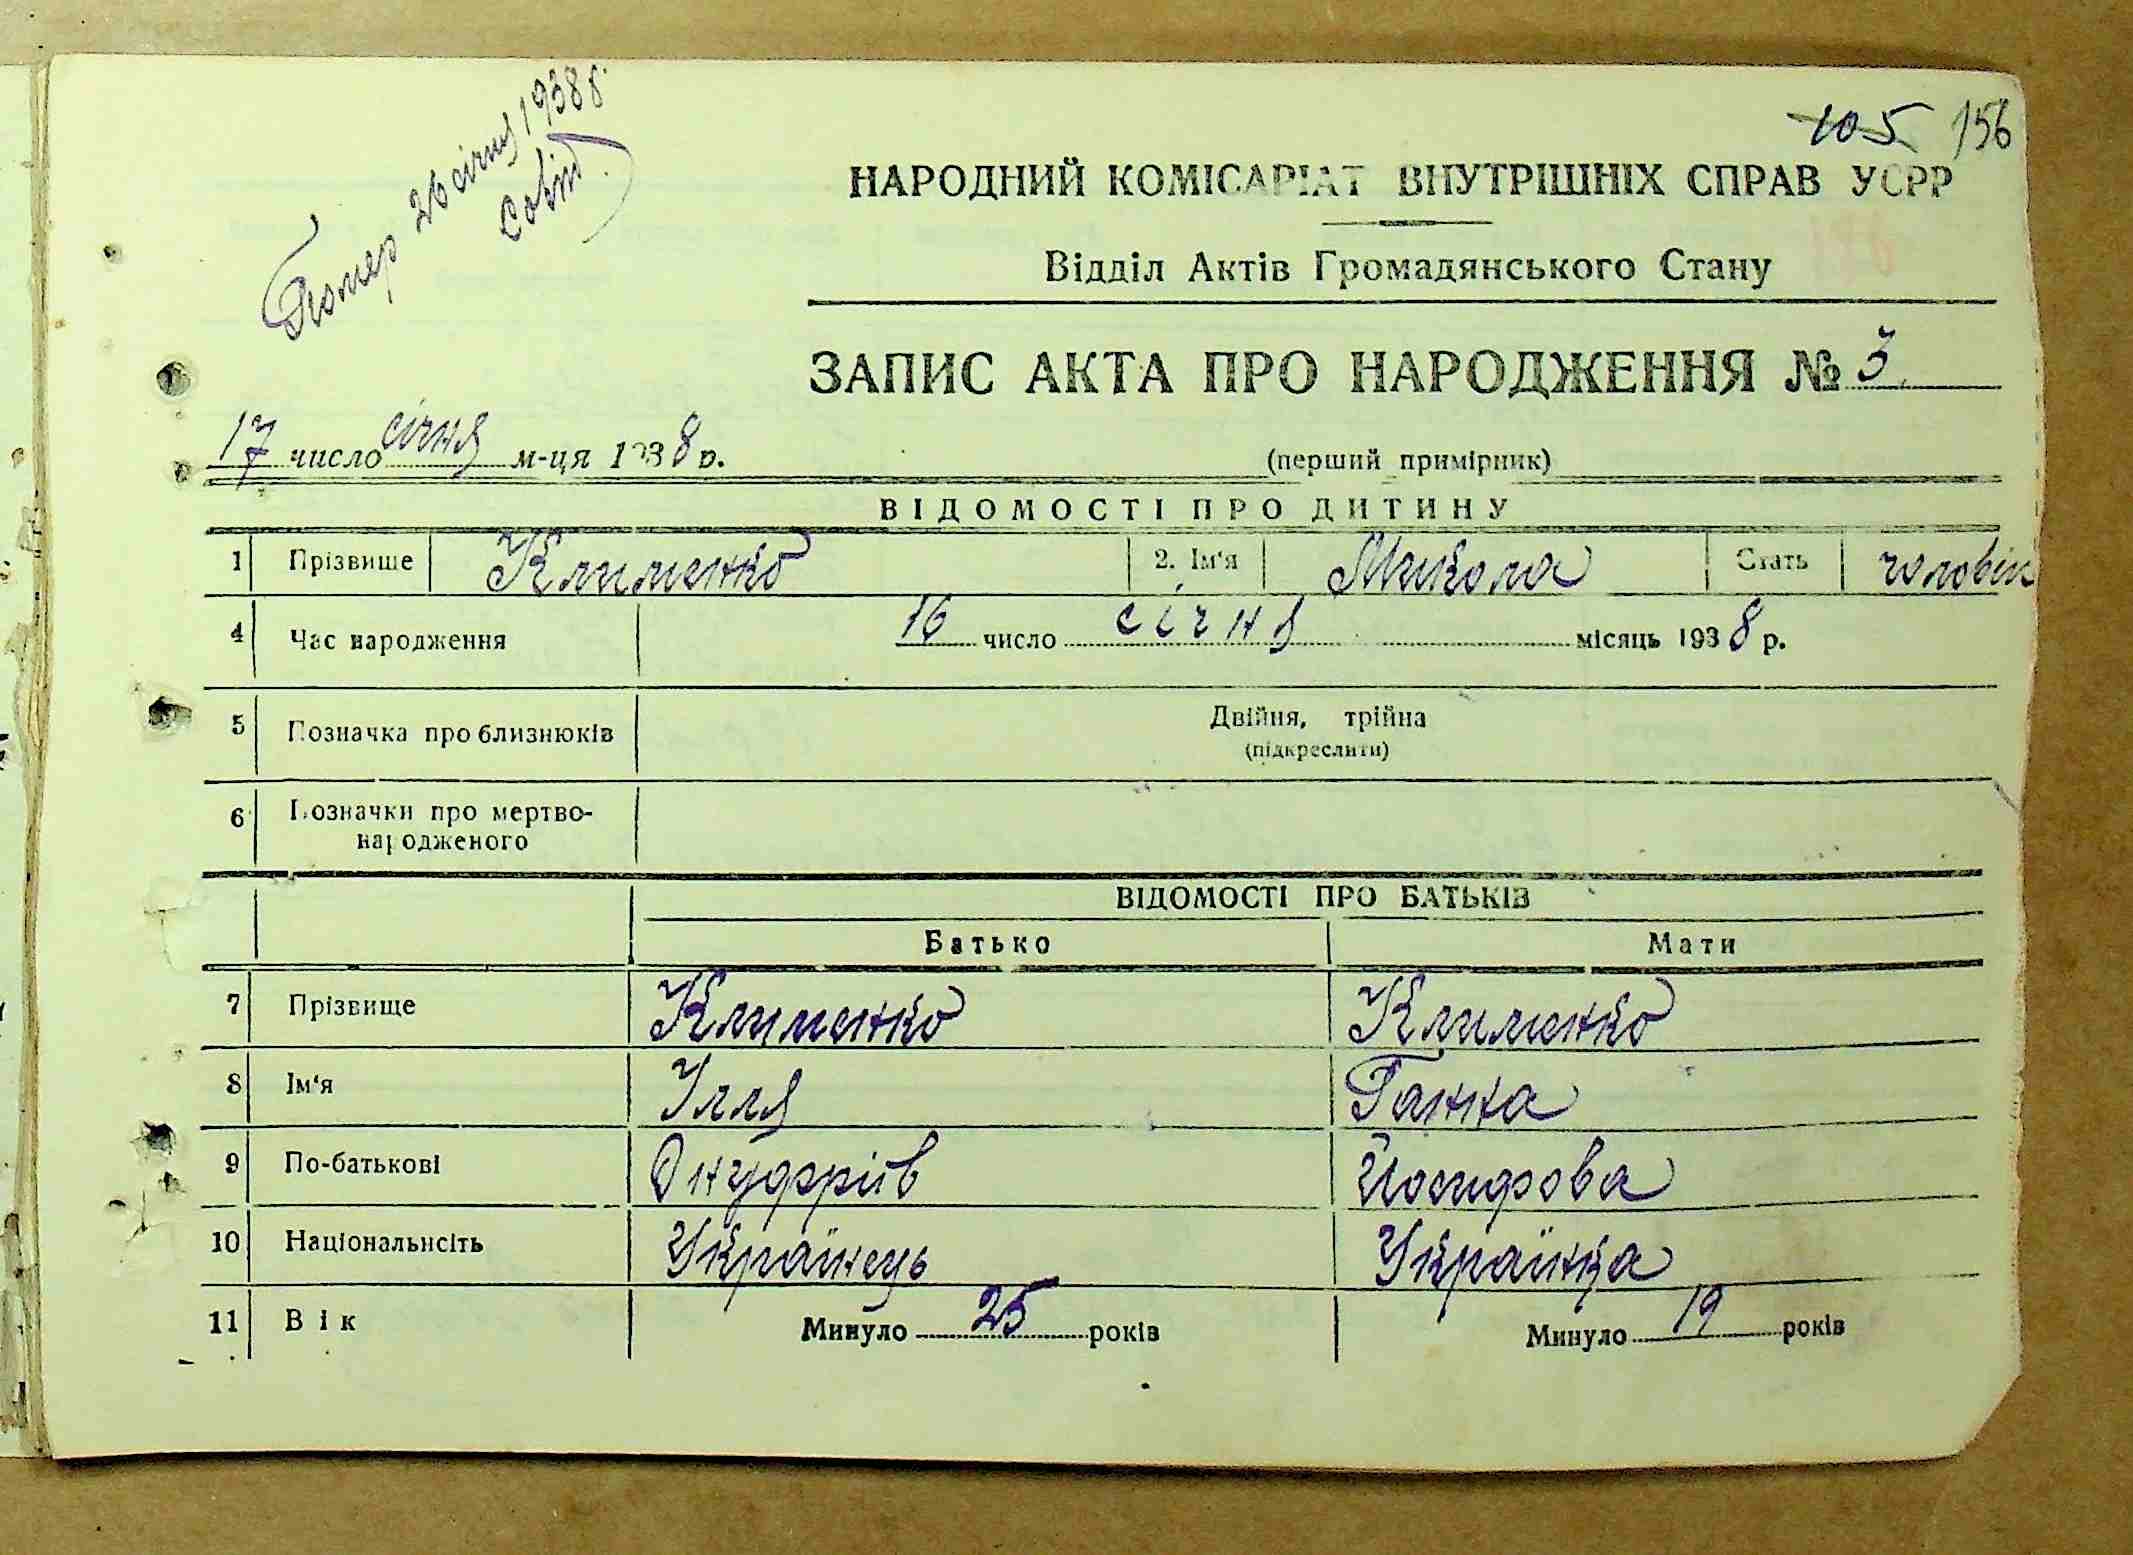 Помер 26 січня 1938 р.
105 156
НАРОДНИЙ КОМІСАРІАТ ВНУТРІШНІХ СПРАВ УСРР
Відділ Актів Громадянського Стану
ЗАПИС АКТА ПРО НАРОДЖЕННЯ № 3
17 число січня м-ця 1938 р.
(перший примірник)
ВІДОМОСТІ ПРО ДИТИНУ
1 Прізвище Клименко 2. Ім'я Микола Стать чоловік
4 Час народження 16 число січня місяць 1938 р.
5 Позначка про близнюків Двійня, трійна
(підкреслити)
6 Позначки про мертво-
народженого
ВІДОМОСТІ ПРО БАТЬКІВ
Батько Мати
7 Прізвище Клименко Клименко
8 Ім'я Ілля Ганна
9 По-батькові Онуфріїв Йосифова
10 Національність Українець Українка
11 Вік Минуло 25 років Минуло 19 років